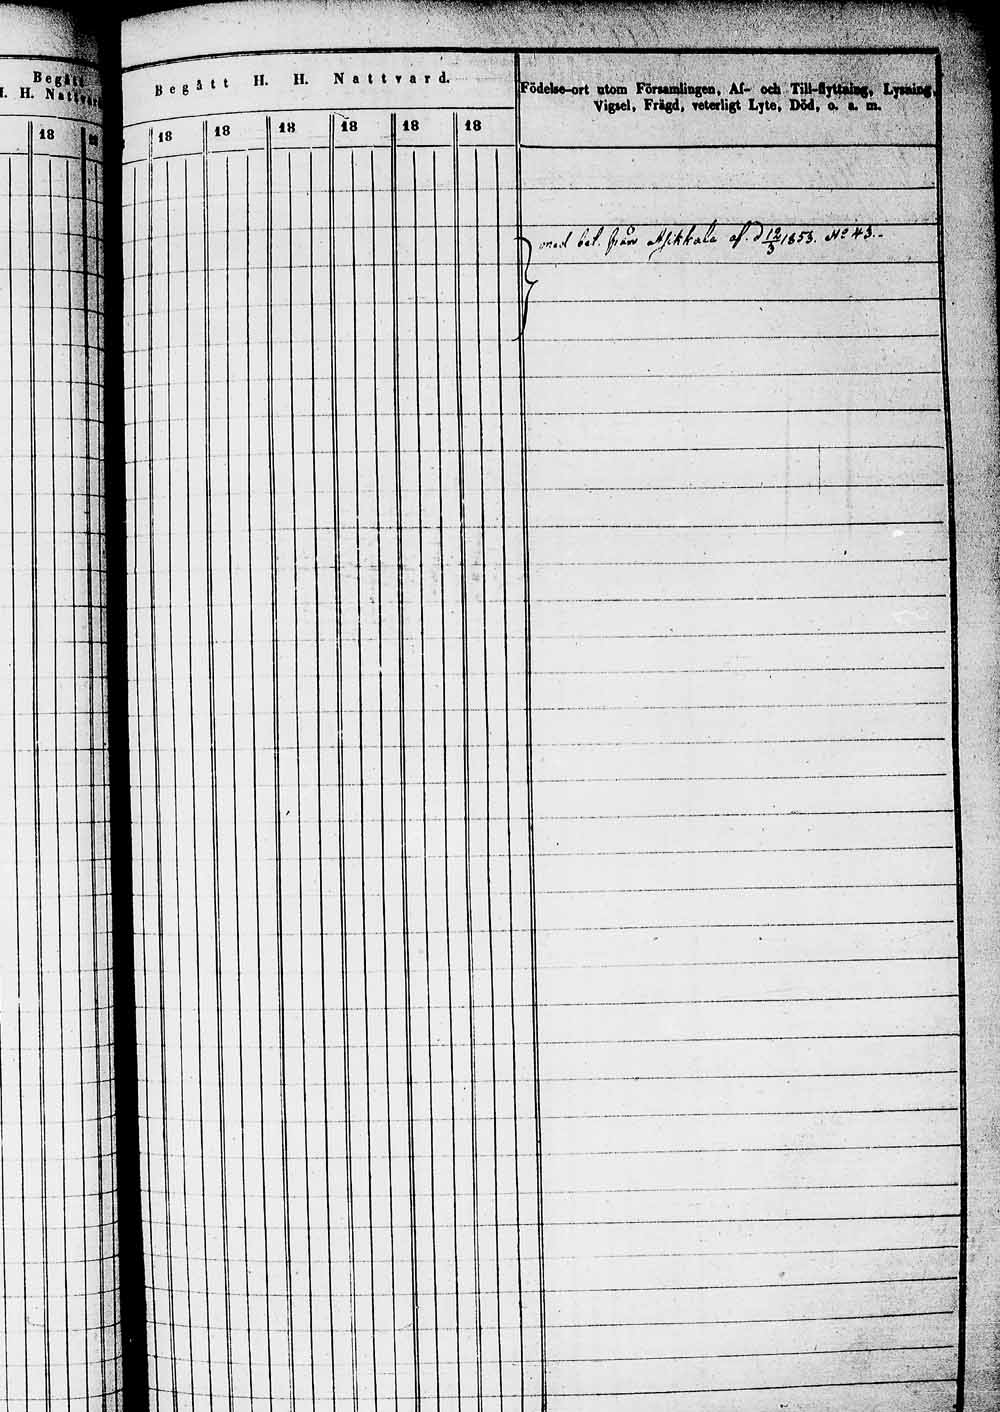 Begått
H. H. Nattvard
18
Begått H. H. Nattvard.
18 18 18 18 18 18
Födelse-ort utom Församlingen, Af- och Till-flyttning, Lysning,
Vigsel, Frägd, veterligt Lyte, Död, o. s. m.
med bet. från Asikkala af. d 12/3 1853. No 43.-